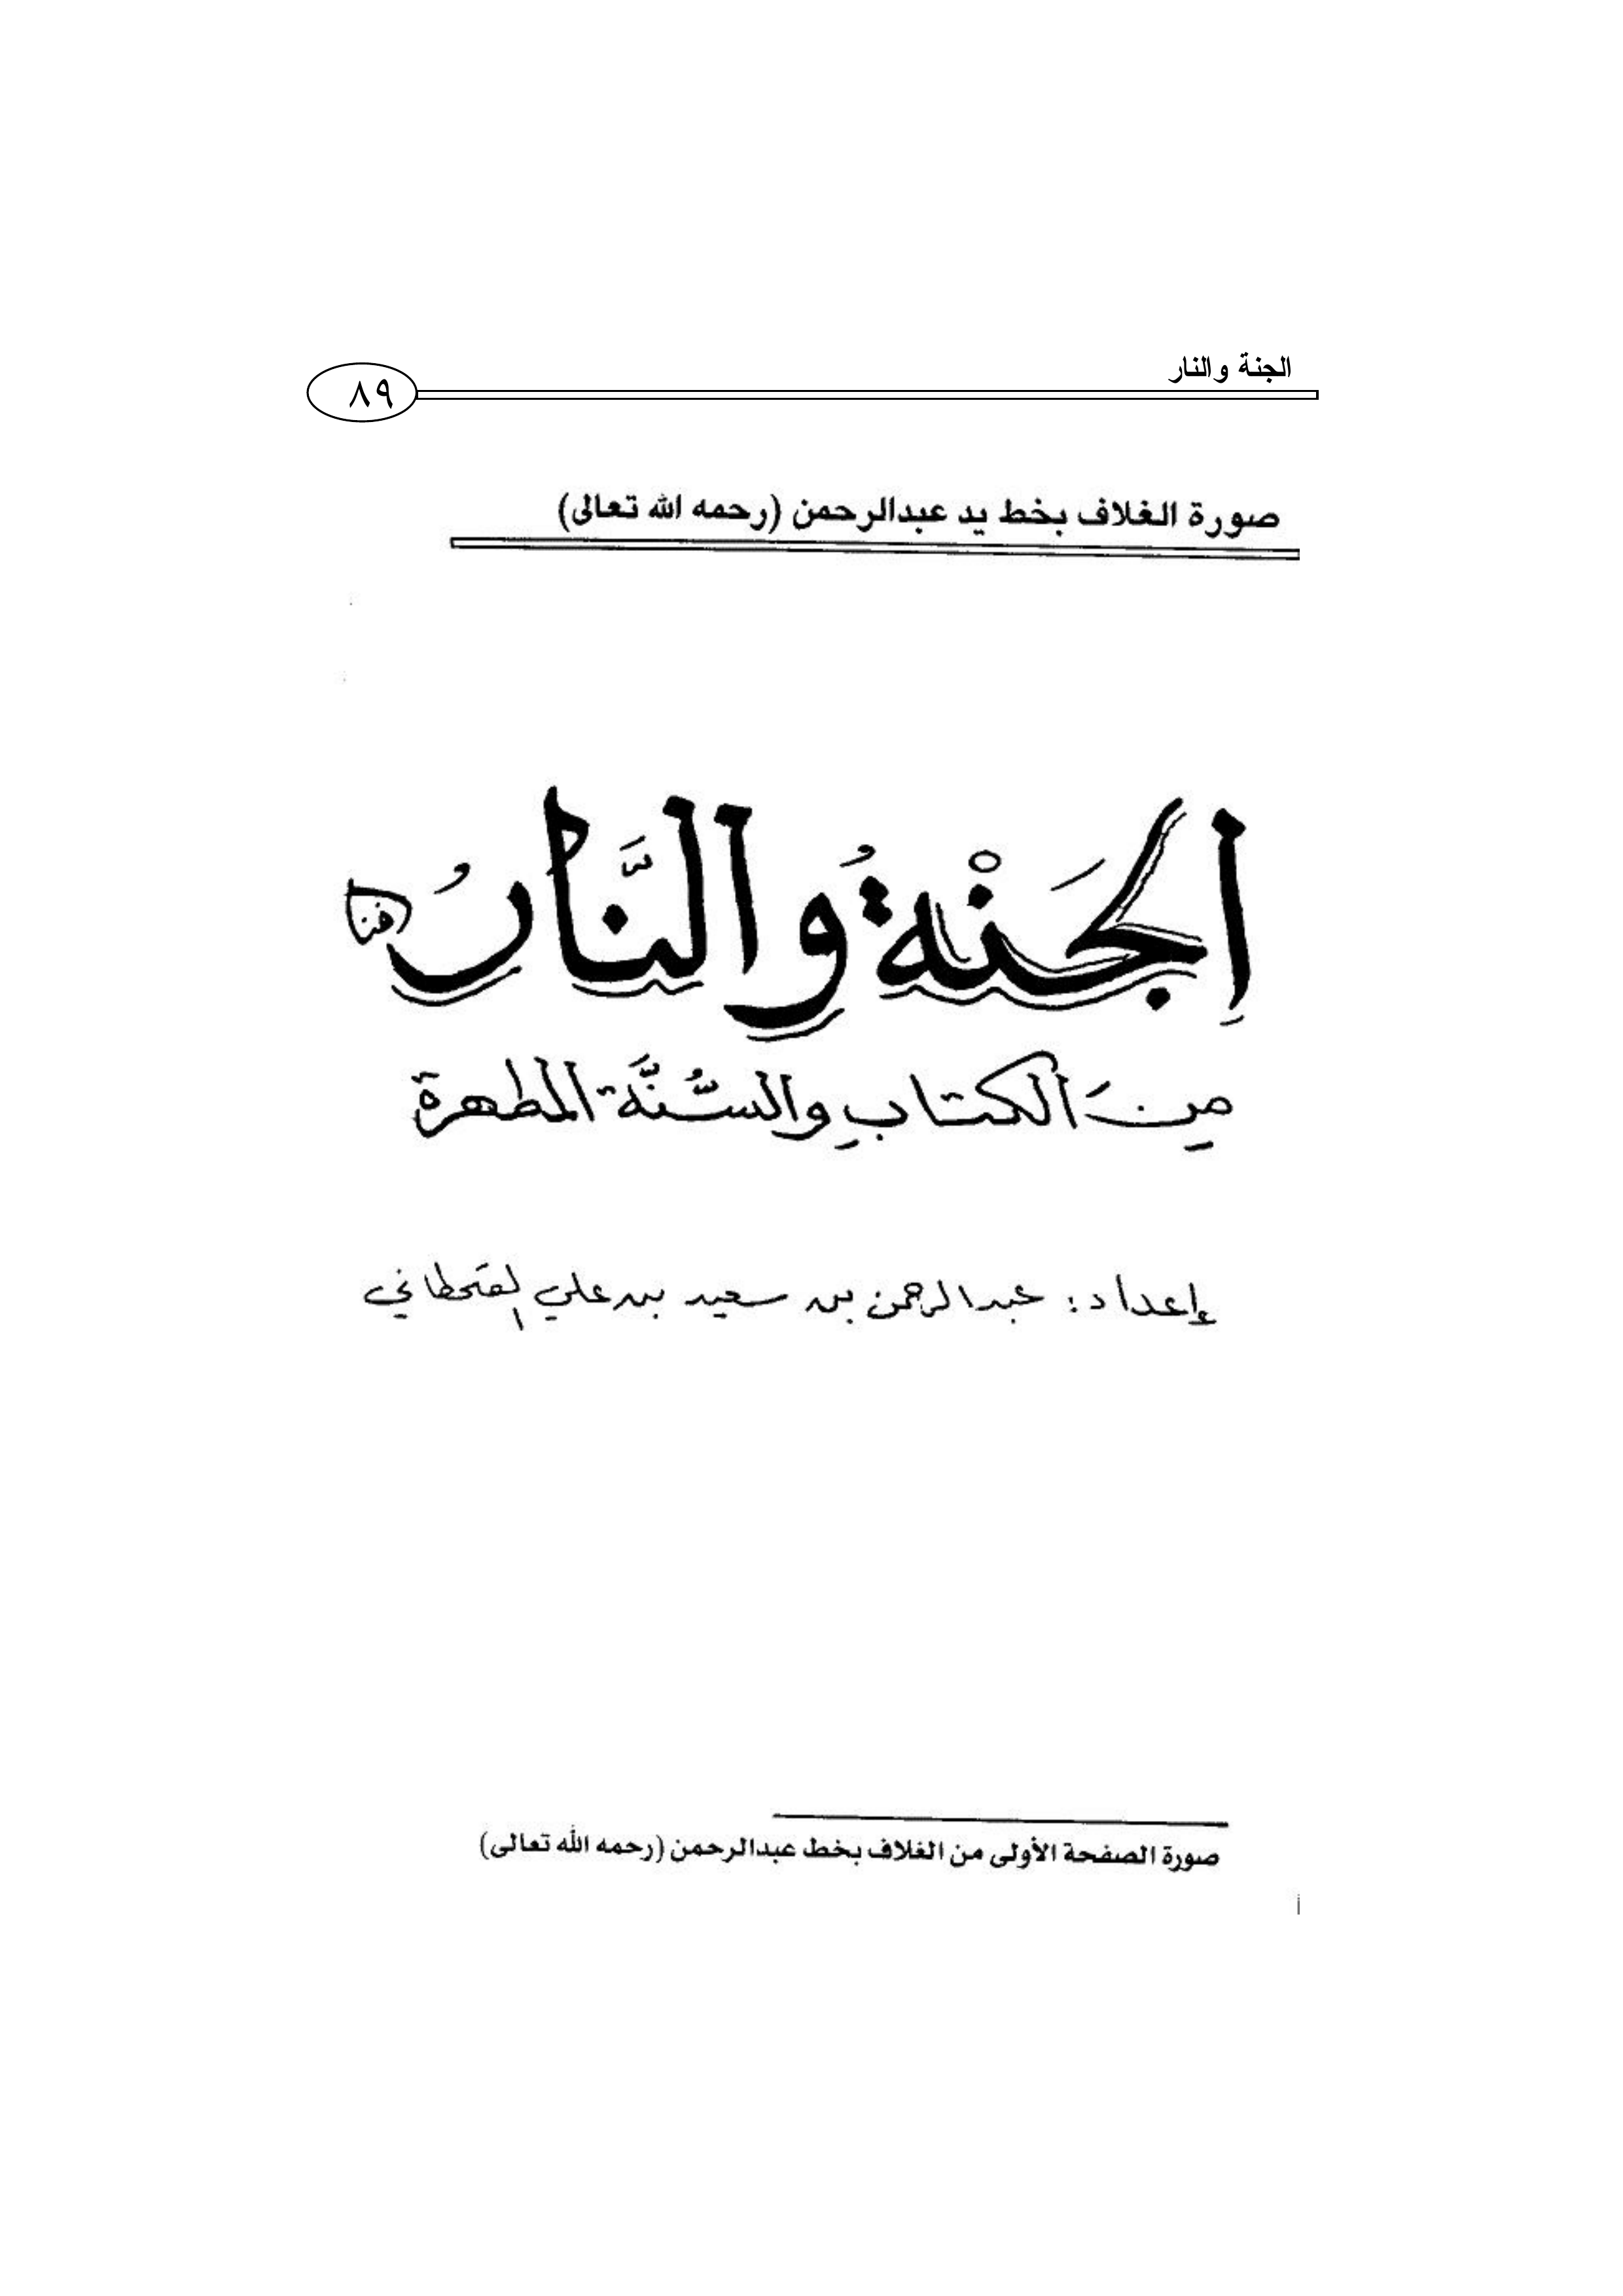 الجنة والنار
٨٩
صورة الغلاف بخط يد عبدالرحمن (رحمه الله تعالى)
اِلجَنْةُ وَالنَّارُ
مِنَ الكتابِ والسُّنَّة المطهرة
إعداد: عبدالرحمن بن سعيد بن علي القحطاني
صورة الصفحة الأولى من الغلاف بخط عبدالرحمن (رحمه الله تعالى)
أ